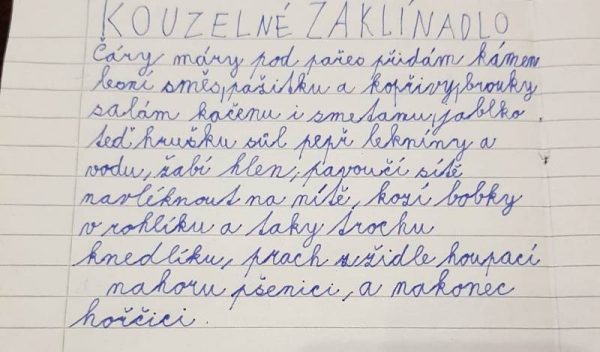 KOUZELNÉ ZAKLÍNADLO
Čáry máry pod pařeo přidám kámen
lesní směs, pažitku a kopřivy, brouky
salám kačenu i smetanu, jablko
teď hrušku sůl pepř lekníny a
vodu, žabí hlen, pavoučí sítě
navléknout na nítě, kozí bobky
v rohlíku a taky trochu
knedlíku, prach z židle houpací
nahoru pšenici, a nakonec
hořčici.